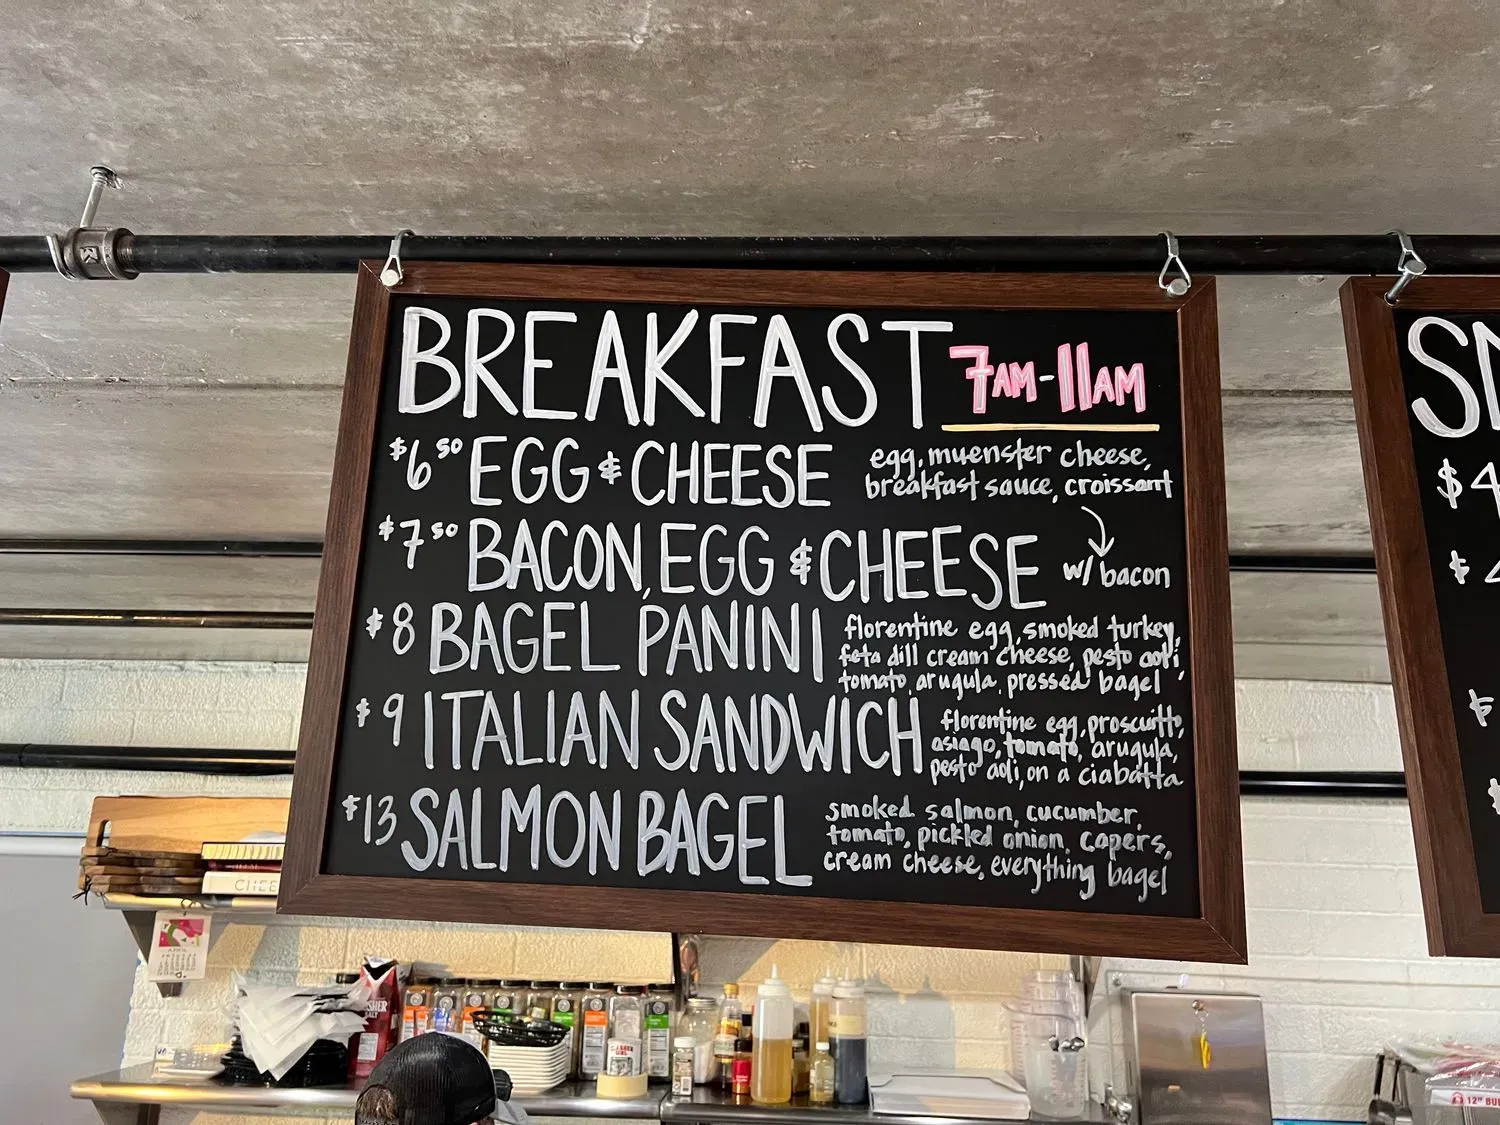 BREAKFAST 7AM-11AM
$6.50 EGG & CHEESE
egg, muenster cheese,
breakfast sauce, croissant
$7.50 BACON, EGG & CHEESE
w/ bacon
$8 BAGEL PANINI
florentine egg, smoked turkey,
feta dill cream cheese, pesto aoli,
tomato, arugula, pressed bagel
$9 ITALIAN SANDWICH
florentine egg, proscuitto,
asiago, tomato, arugula,
pesto aoli, on a ciabatta
$13 SALMON BAGEL
smoked salmon, cucumber,
tomato, pickled onion, capers,
cream cheese, everything bagel
$4
APRIL
12"